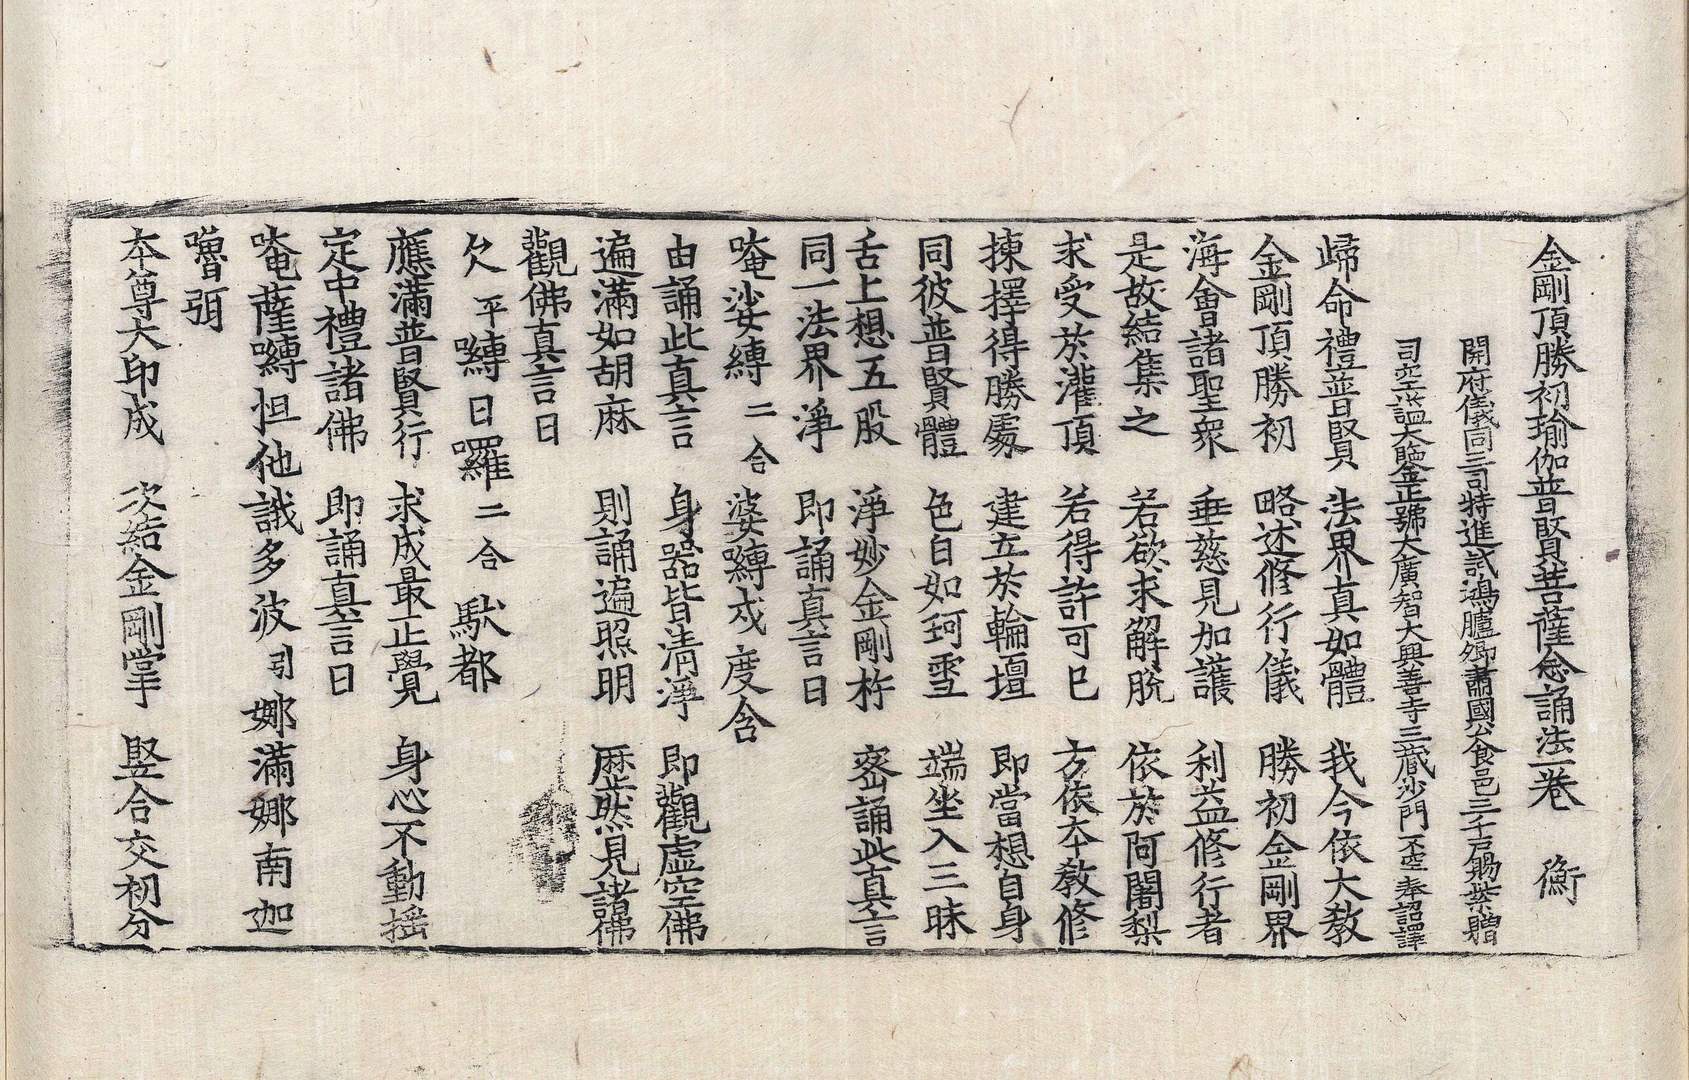 金剛頂勝初瑜伽普賢菩薩念誦法一卷 衡
開府儀同三司特進試鴻臚卿肅國公食邑三千戶賜紫贈
司空謚大鑒正號大廣智大興善寺三藏沙門不空奉詔譯
歸命禮普賢 法界真如體 我今依大教
金剛頂勝初 略述修行儀 勝初金剛界
海會諸聖眾 垂慈見加護 利益修行者
是故結集之 若欲求解脫 依於阿闍梨
求受於灌頂 若得許可已 方依本教修
揀擇得勝處 建立於輪壇 即當想自身
同彼普賢體 色白如珂雪 端坐入三昧
舌上想五股 淨妙金剛杵 密誦此真言
同一法界淨 即誦真言曰
唵娑縛二合婆嚩戍度含
由誦此真言 身器皆清淨 即觀虛空佛
遍滿如胡麻 則誦遍照明 歷然見諸佛
觀佛真言曰
欠平嚩日囉二合馱都
應滿普賢行 求成最正覺 身心不動搖
定中禮諸佛 即誦真言曰
唵薩嚩怛他誐多波引娜滿娜南迦
嚕弭
本尊大印成 次結金剛掌 竪合交初分